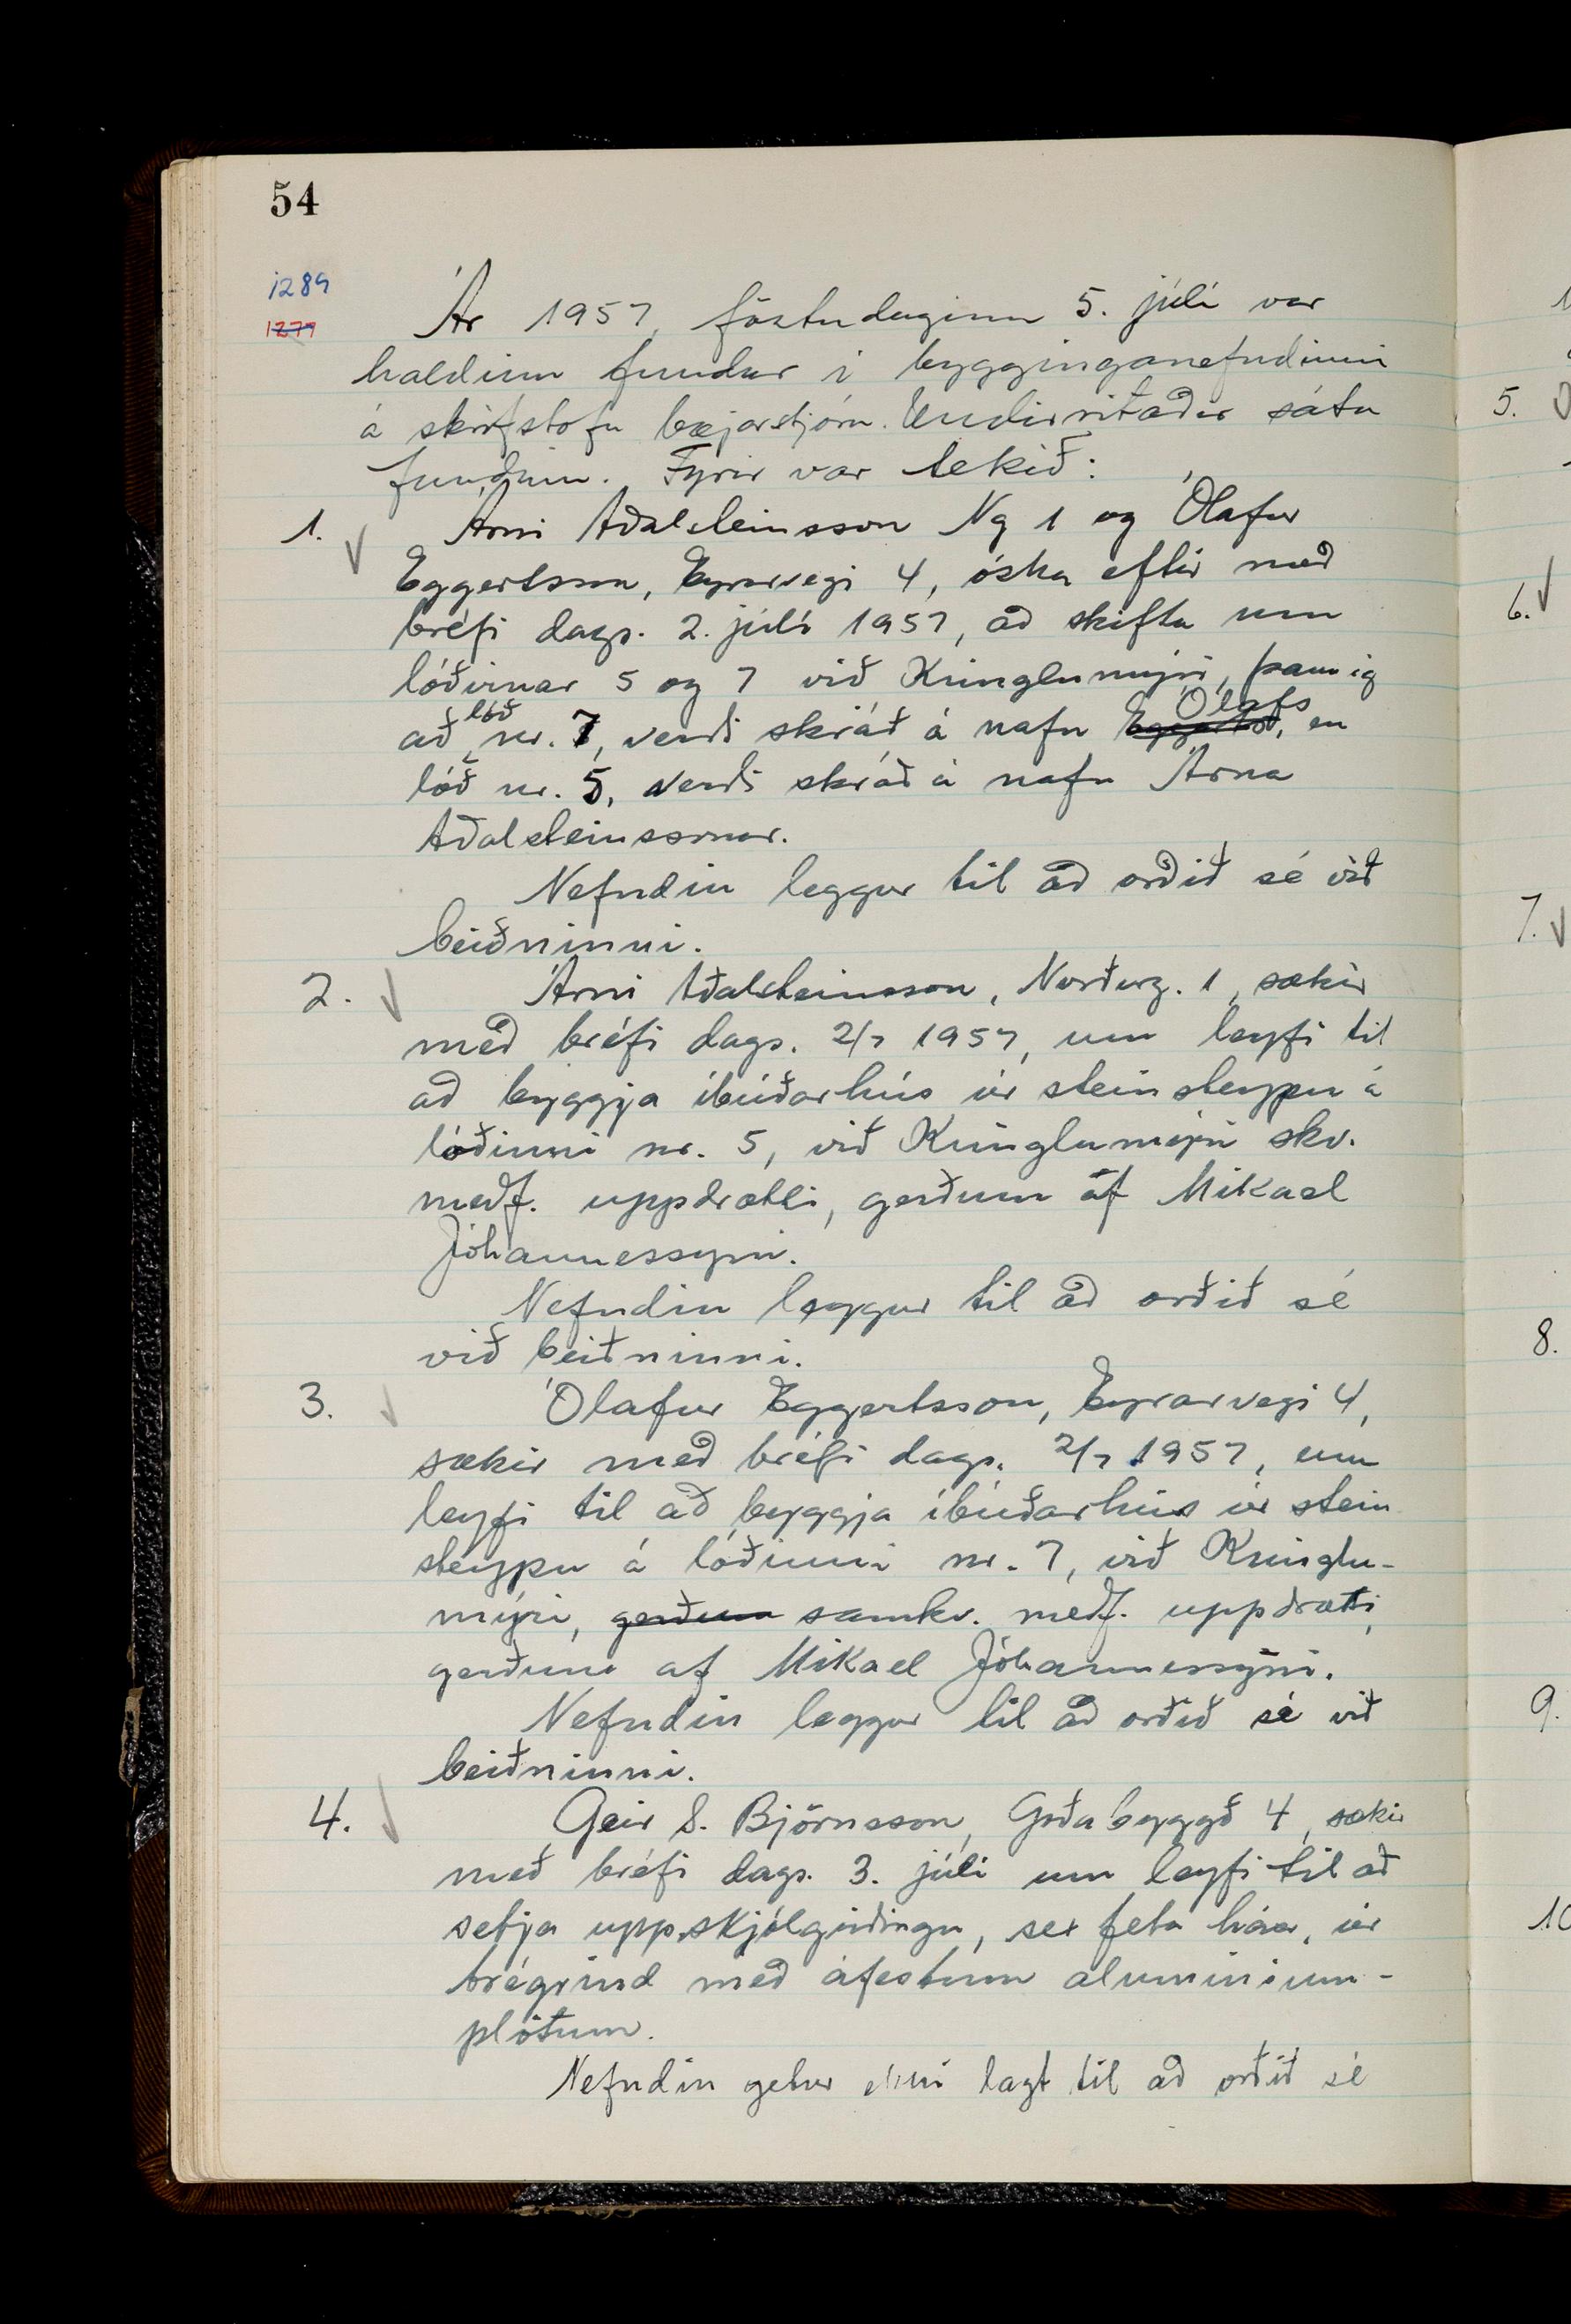 54
1289
1279
Ár 1957, föstudaginn 5. júlí var
haldinn fundur í bygginganefndinni
á skrifstofu bæjarstjóra. Undirritaðir sátu
fundinn. Fyrir var tekið:
1. Árni Aðalsteinsson Ng 1 og Ólafur
Eggertsson, Eyrarvegi 4, óska eftir með
bréfi dags. 2. júlí 1957, að skifta um
lóðirnar 5 og 7 við Kringlumýri, þannig
að lóð nr. 7, verði skráð á nafn Eggerts Ólafs, en
lóð nr. 5, verði skráð á nafn Árna
Aðalsteinssonar.
Nefndin leggur til að orðið sé við
beiðninni.
2. Árni Aðalsteinsson, Norðurg. 1, sækir
með bréfi dags. 2/7 1957, um leyfi til
að byggja íbúðarhús úr steinsteypu á
lóðinni nr. 5, við Kringlumýri skv.
meðf. uppdrætti, gerðum af Mikael
Jóhannessyni.
Nefndin leggur til að orðið sé
við beiðninni.
3. Ólafur Eggertsson, Eyrarvegi 4,
sækir með bréfi dags. 2/7 1957, um
leyfi til að byggja íbúðarhús úr stein
steypu á lóðinni nr. 7, við Kringlu-
mýri, gerðum samkv. meðf. uppdrætti,
gerðum af Mikael Jóhannessyni.
Nefndin leggur til að orðið sé við
beiðninni.
4. Geir S. Björnsson, Goðabyggð 4, sækir
með bréfi dags. 3. júlí um leyfi til að
setja upp skjólgirðingu, sex feta háa, úr
trégrind með áfestum aluminium-
plötum.
Nefndin getur ekki lagt til að orðið sé
5.
6.
7.
8.
9.
10